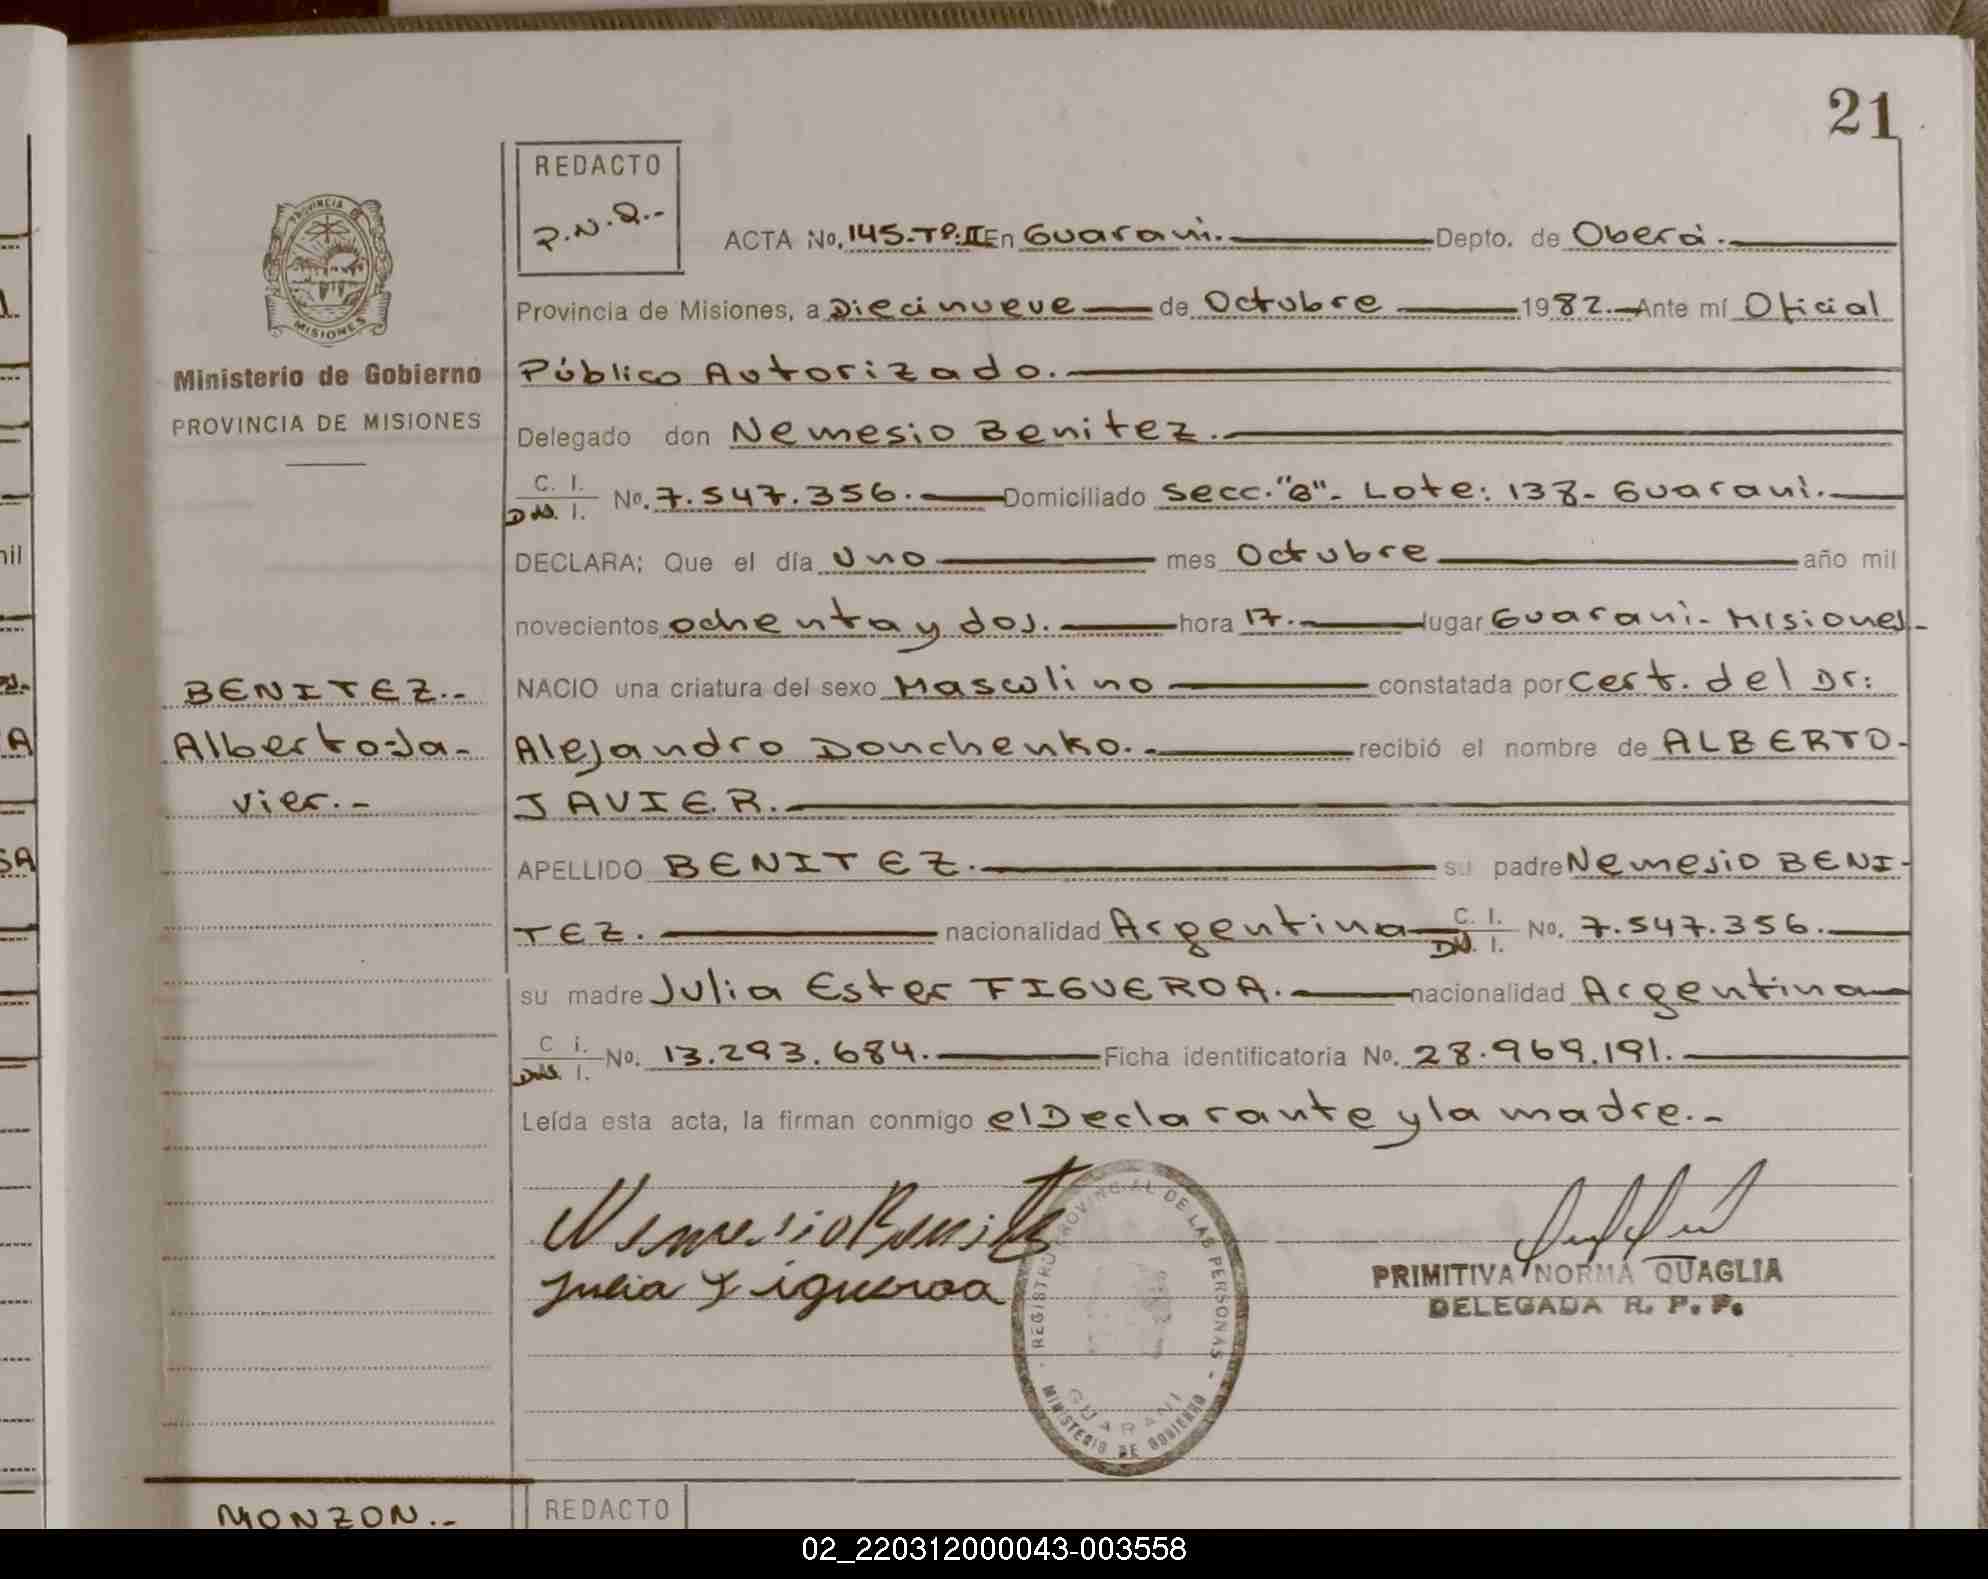 21
REDACTO
P.N.Q.-
PROVINCIA DE
MISIONES
Ministerio de Gobierno
PROVINCIA DE MISIONES
ACTA No. 145.-TP.II En Guarani. Depto. de Oberá.
Provincia de Misiones, a Diecinueve de Octubre 1982.- Ante mí Oficial
Público Autorizado.
Delegado don Nemesio Benitez.
C. I.
DN. I. No. 7.547.356. Domiciliado Secc. "8"- Lote: 138- Guarani.
DECLARA; Que el día Uno mes Octubre año mil
novecientos ochenta y dos. hora 17. lugar Guarani- Misiones-
NACIO una criatura del sexo Masculino constatada por Cert. del Dr:
Alejandro Douchenko.- recibió el nombre de ALBERTO-
JAVIER.
APELLIDO BENITEZ. su padre Nemesio BENI-
TEZ. nacionalidad Argentina C. I.
DN. I. No. 7.547.356.
su madre Julia Ester FIGUEROA. nacionalidad Argentina
C i.
DN. I. No. 13.293.684. Ficha identificatoria No. 28.969.191.
Leída esta acta, la firman conmigo el Declarante y la madre.-
BENITEZ.-
Alberto Ja-
vier.-
Nemesio Benitez
Julia Figueroa
REGISTRO PROVINCIAL DE LAS PERSONAS -
MINISTERIO DE GOBIERNO
GUARANI
PRIMITIVA NORMA QUAGLIA
DELEGADA R. P. P.
MONZON.-
REDACTO
nil
SA
02_220312000043-003558